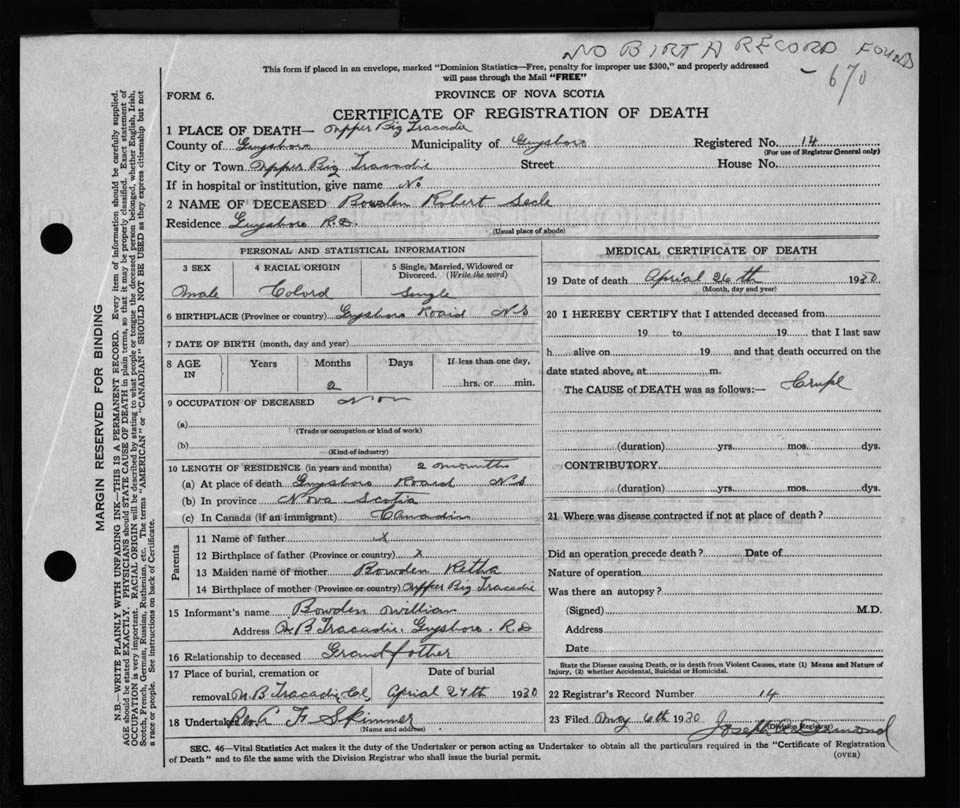 NO BIRTH RECORD FOUND
- 670
This form if placed in an envelope, marked "Dominion Statistics—Free, penalty for improper use $300," and properly addressed
will pass through the Mail "FREE"
FORM 6.
PROVINCE OF NOVA SCOTIA
CERTIFICATE OF REGISTRATION OF DEATH
1 PLACE OF DEATH— Upper Big Tracadie
County of Guysboro Municipality of Guysboro Registered No. 14
(For use of Registrar General only)
City or Town Upper Big Tracadie Street House No.
If in hospital or institution, give name No
2 NAME OF DECEASED Bowden Robert
Residence Guysboro R.D.
(Usual place of abode)
PERSONAL AND STATISTICAL INFORMATION
3 SEX 4 RACIAL ORIGIN 5 Single, Married, Widowed or
Divorced. (Write the word)
Male Colord Single
6 BIRTHPLACE (Province or country) Guysboro Roard NS
7 DATE OF BIRTH (month, day and year)
8 AGE IN Years Months Days If less than one day,
2 hrs. or min.
9 OCCUPATION OF DECEASED Non
(a)
(Trade or occupation or kind of work)
(b)
(Kind of industry)
10 LENGTH OF RESIDENCE (in years and months) 2 mounths
(a) At place of death Guysboro Roard NS
(b) In province Nova Scotia
(c) In Canada (if an immigrant) Canadin
Parents
11 Name of father X
12 Birthplace of father (Province or country) X
13 Maiden name of mother Bowden Retha
14 Birthplace of mother (Province or country) Upper Big Tracadie
15 Informant's name Bowden William
Address U B Tracadie, Guysboro R.D
16 Relationship to deceased Grandfother
17 Place of burial, cremation or Date of burial
removal U.B Tracadie, Co, Aprial 27th 1930
18 Undertaker F Skinner
(Name and address)
MEDICAL CERTIFICATE OF DEATH
19 Date of death Aprial 26th 1930
(Month, day and year)
20 I HEREBY CERTIFY that I attended deceased from
19 to 19 that I last saw
h alive on 19 and that death occurred on the
date stated above, at m.
The CAUSE of DEATH was as follows:— Crupe
(duration) yrs. mos. dys.
CONTRIBUTORY
(duration) yrs. mos. dys.
21 Where was disease contracted if not at place of death?
Did an operation precede death? Date of
Nature of operation
Was there an autopsy?
(Signed) M.D.
Address
Date
State the Disease causing Death, or in death from Violent Causes, state (1) Means and Nature of
Injury, (2) whether Accidental, Suicidal or Homicidal.
22 Registrar's Record Number 14
23 Filed May 6th 1930 Joseph
(Division Registrar)
SEC. 46—Vital Statistics Act makes it the duty of the Undertaker or person acting as Undertaker to obtain all the particulars required in the "Certificate of Registration
of Death" and to file the same with the Division Registrar who shall issue the burial permit.
(OVER)
MARGIN RESERVED FOR BINDING
N.B.—WRITE PLAINLY WITH UNFADING INK—THIS IS A PERMANENT RECORD. Every item of information should be carefully supplied.
AGE should be stated EXACTLY. PHYSICIANS should STATE CAUSE OF DEATH in plain terms, so that it may be properly classified. Exact statement of
OCCUPATION is very important. RACIAL ORIGIN will be described by stating to what people or tongue the deceased person belonged, whether English, Irish,
Scotch, French, German, Russian, Ruthenian, etc. The terms "AMERICAN" or "CANADIAN" SHOULD NOT BE USED as they express citizenship but not
a race or people. See instructions on back of Certificate.